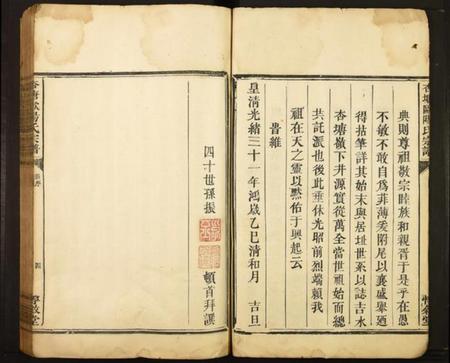 杏塘歐陽氏宗譜
典則尊祖敬宗睦族和親胥于是乎在愚
不敏不敢自爲菲薄爰附尾以襄盛舉廼
得拮筆詳其始末與居址世系以誌吉水
杏塘嶺下井源實從萬全當世祖始而總
共託派也後此垂休光昭前烈端賴我
祖在天之靈以默佑于興起云
昔維
皇清光緒三十一年鴻歲乙巳清和月 吉旦
四十世孫振 頓首拜譔
杏塘歐陽氏宗譜
四